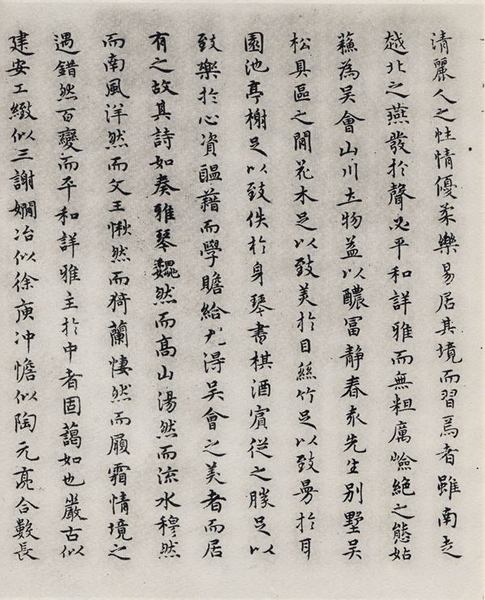 清麗人之性情優柔樂易居其境而習焉者雖南走
越北之燕發於聲必平和詳雅而無粗厲噞絶之態姑
蘓為吴會山川土物益以醲冨静春袁先生别墅吴
松具區之間花木足以致美於目絲竹足以致曼於耳
園池亭榭足以致佚於身琴書棋酒賓從之勝足以
致樂於心資醖藉而學贍給尤得吴會之美者而居
有之故其詩如奏雅琴巍然而髙山湯然而流水穆然
而南風洋然而文王愀然而猗蘭悽然而履霜情境之
遇錯然百變而平和詳雅主於中者固藹如也嚴古似
建安工緻似三謝嫻冶似徐庾沖憺似陶元亮合數長